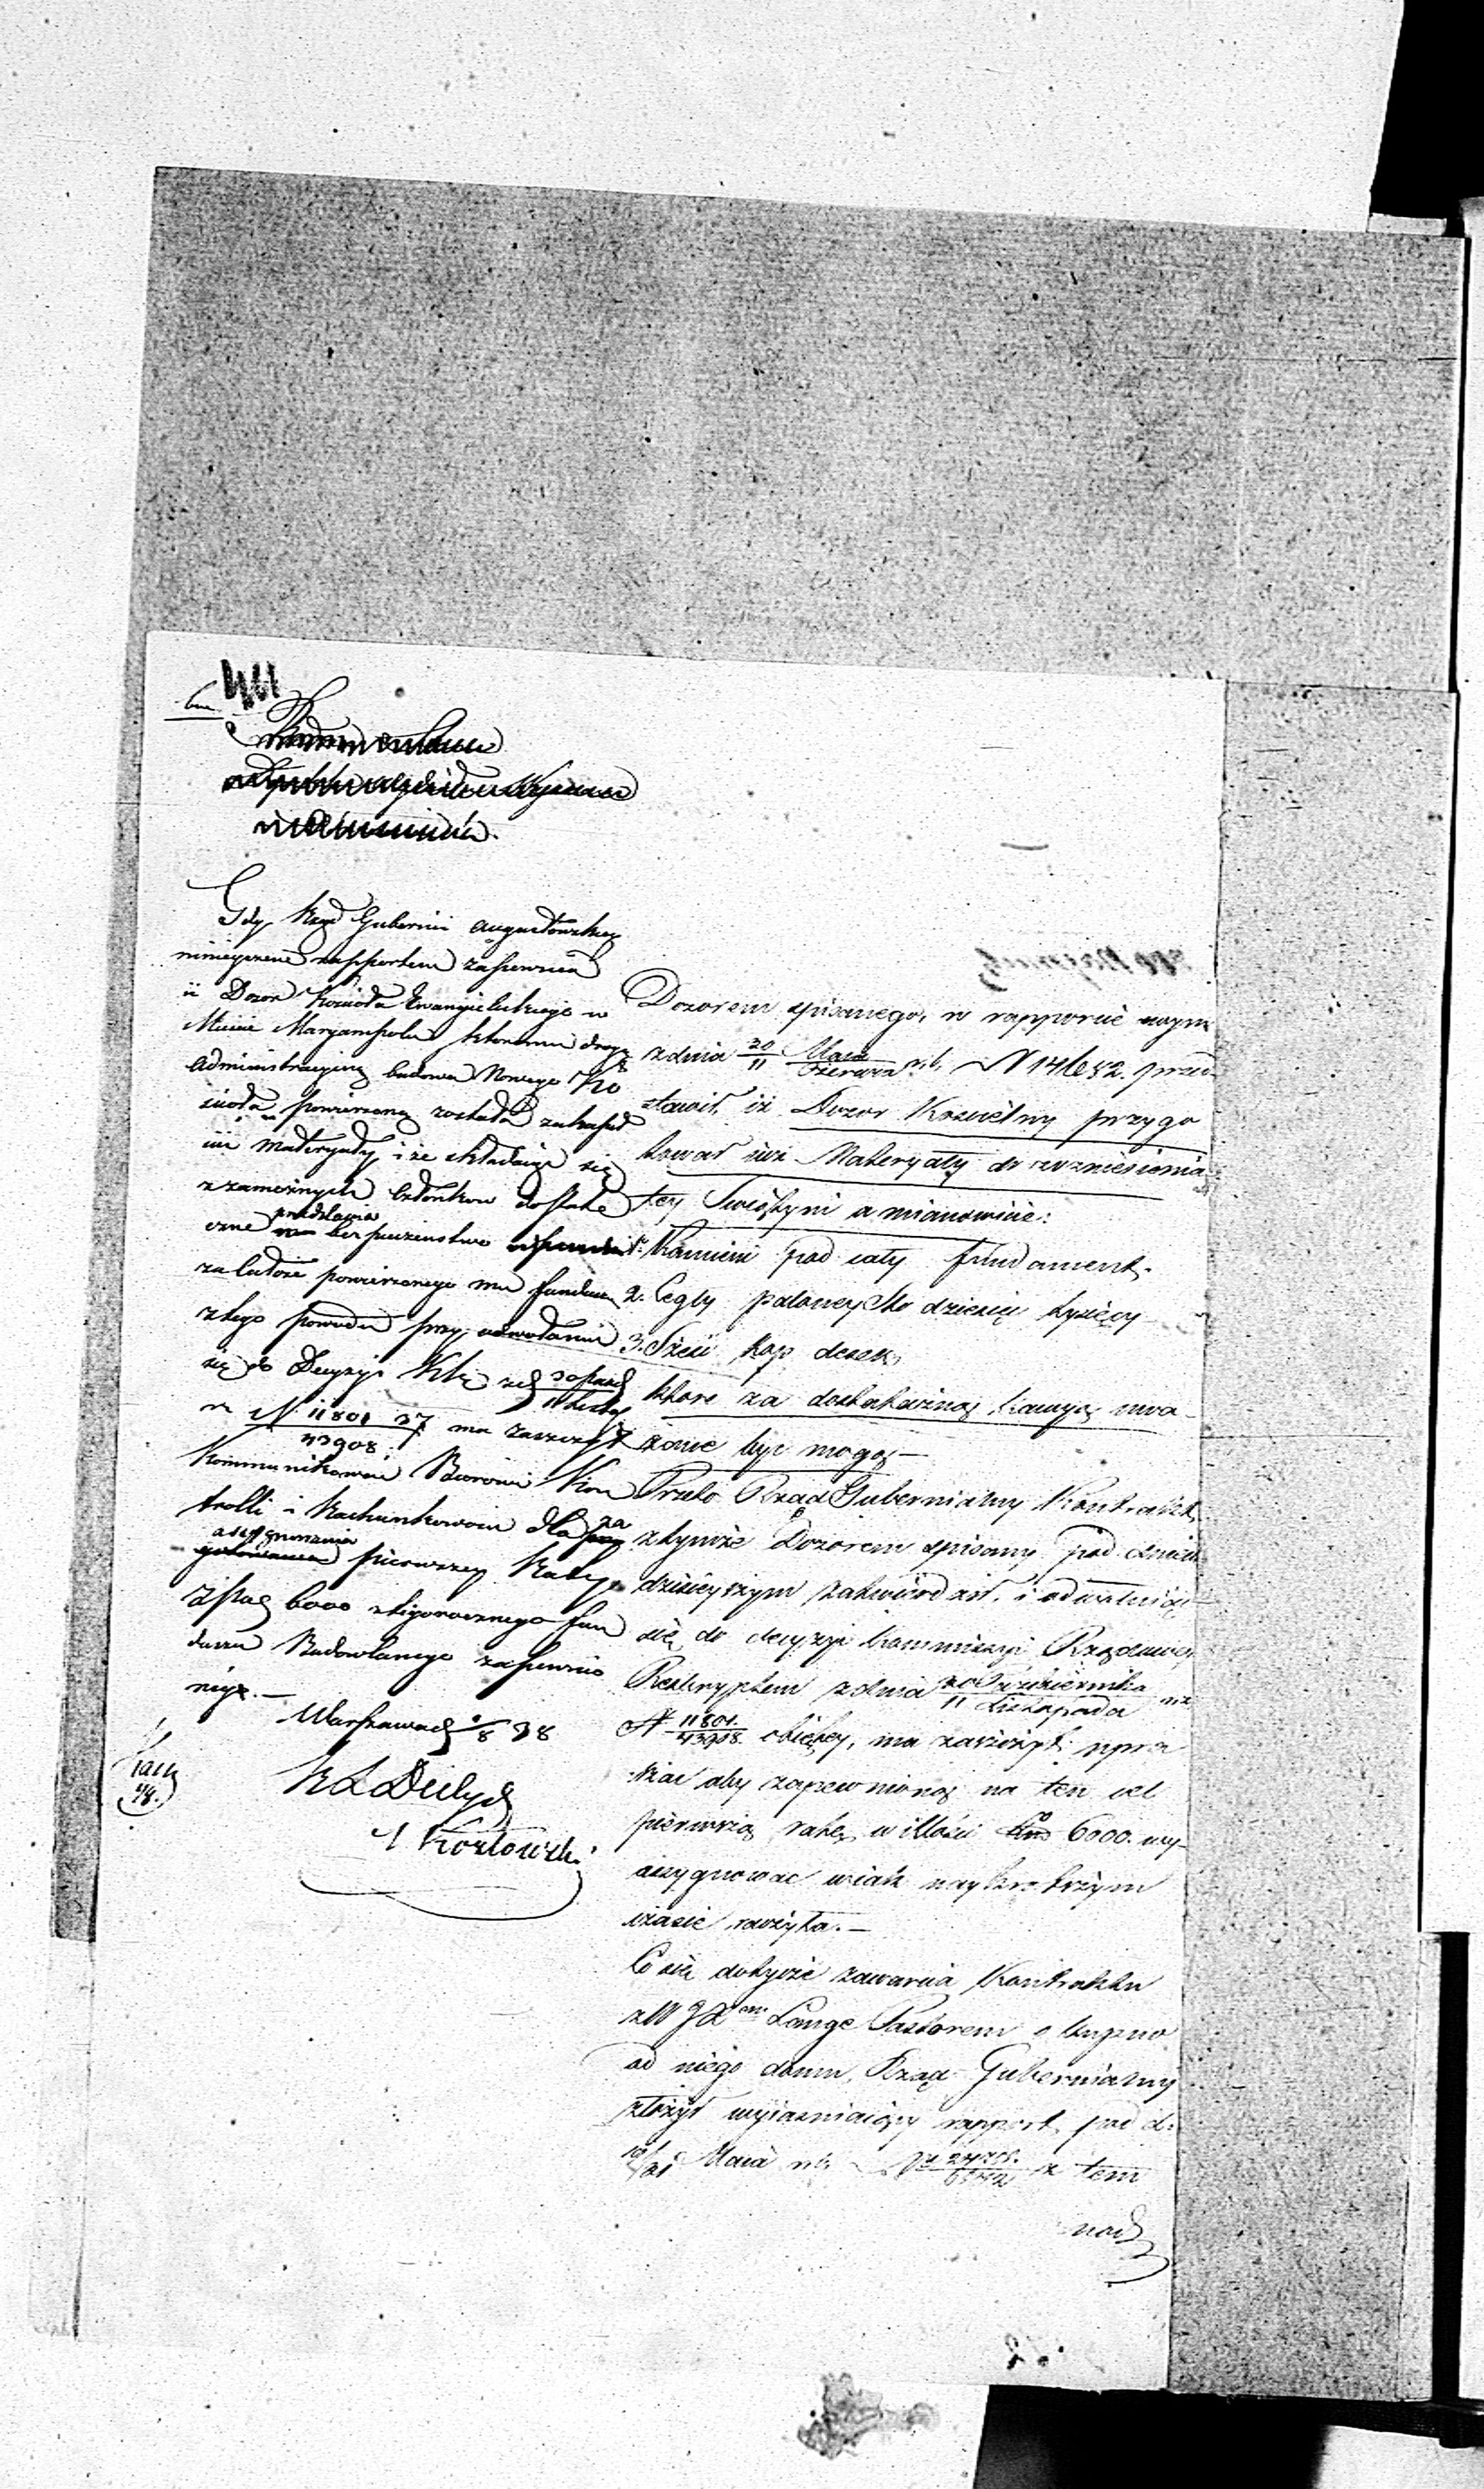 Gdy Rząd Gubernii Augustowskiey
ninieyszem rapportem zapewnia
iż Dozor Kościoła Ewangielickiego w
Mieście Maryampolu ktoremu drogą
administracyiną budowa Nowego Ko
ścioła powierzoną została zakupił
iuż materyały, i że składaiąc się
z zamożnych Członkow dostate
czne przedstawia bezpieczeństwo
za całość powierzonego mu funduszu
z tego powodu przy odwołaniu
się do Decyzyi
N 11801/43908 37 ma zaszczyt
Kommunikować Biurowi Kon
trolli i Rachunkowości dla za
assygnowania pierwszey Raty
złpol 6000 z tegorocznego fun
duszu Budowlanego zapewnio
nego.—
Warszawa 8 38
Kozłowski
Dozorem spisanego, w rapporcie swym
z dnia 20/11 Maia/Czerwca r. b. N 14652. przed
stawił, iż Dozor Kościelny przygo
tował iuż Materyały do wzniesienia
tey Swiątyni a mianowicie:
1. Kamieni pod cały fundament.
2. Cegły paloney Sto dziesięć tysięcy
3. Sześć kop desek,
ktore za dostateczną kaucyą uwa-
żane być mogą—
Przeto Rząd Gubernialny Kontrakt,
z tymże Dozorem spisany pod dniem
dzisieyszym zatwierdził, i odwołuiąc
się do decyzyi Kommissyi Rządowey
Reskryptem z dnia 30 Października/11 Listopada
N 11801/43908. obiętey, ma zaszczyt upra
szać aby zapewnioną na ten cel
pierwszą ratę w illości 6000. wy-
assygnować w iak naykrotszym
czasie raczyła.—
Co się dotycze zawarcia Kontraktu
z W JX Lange Pastorem o kupno
od niego domu, Rząd Gubernialny
złożył wyiasniaiący rapport, pod d.
19/31 Maia r. b. z tem
nad